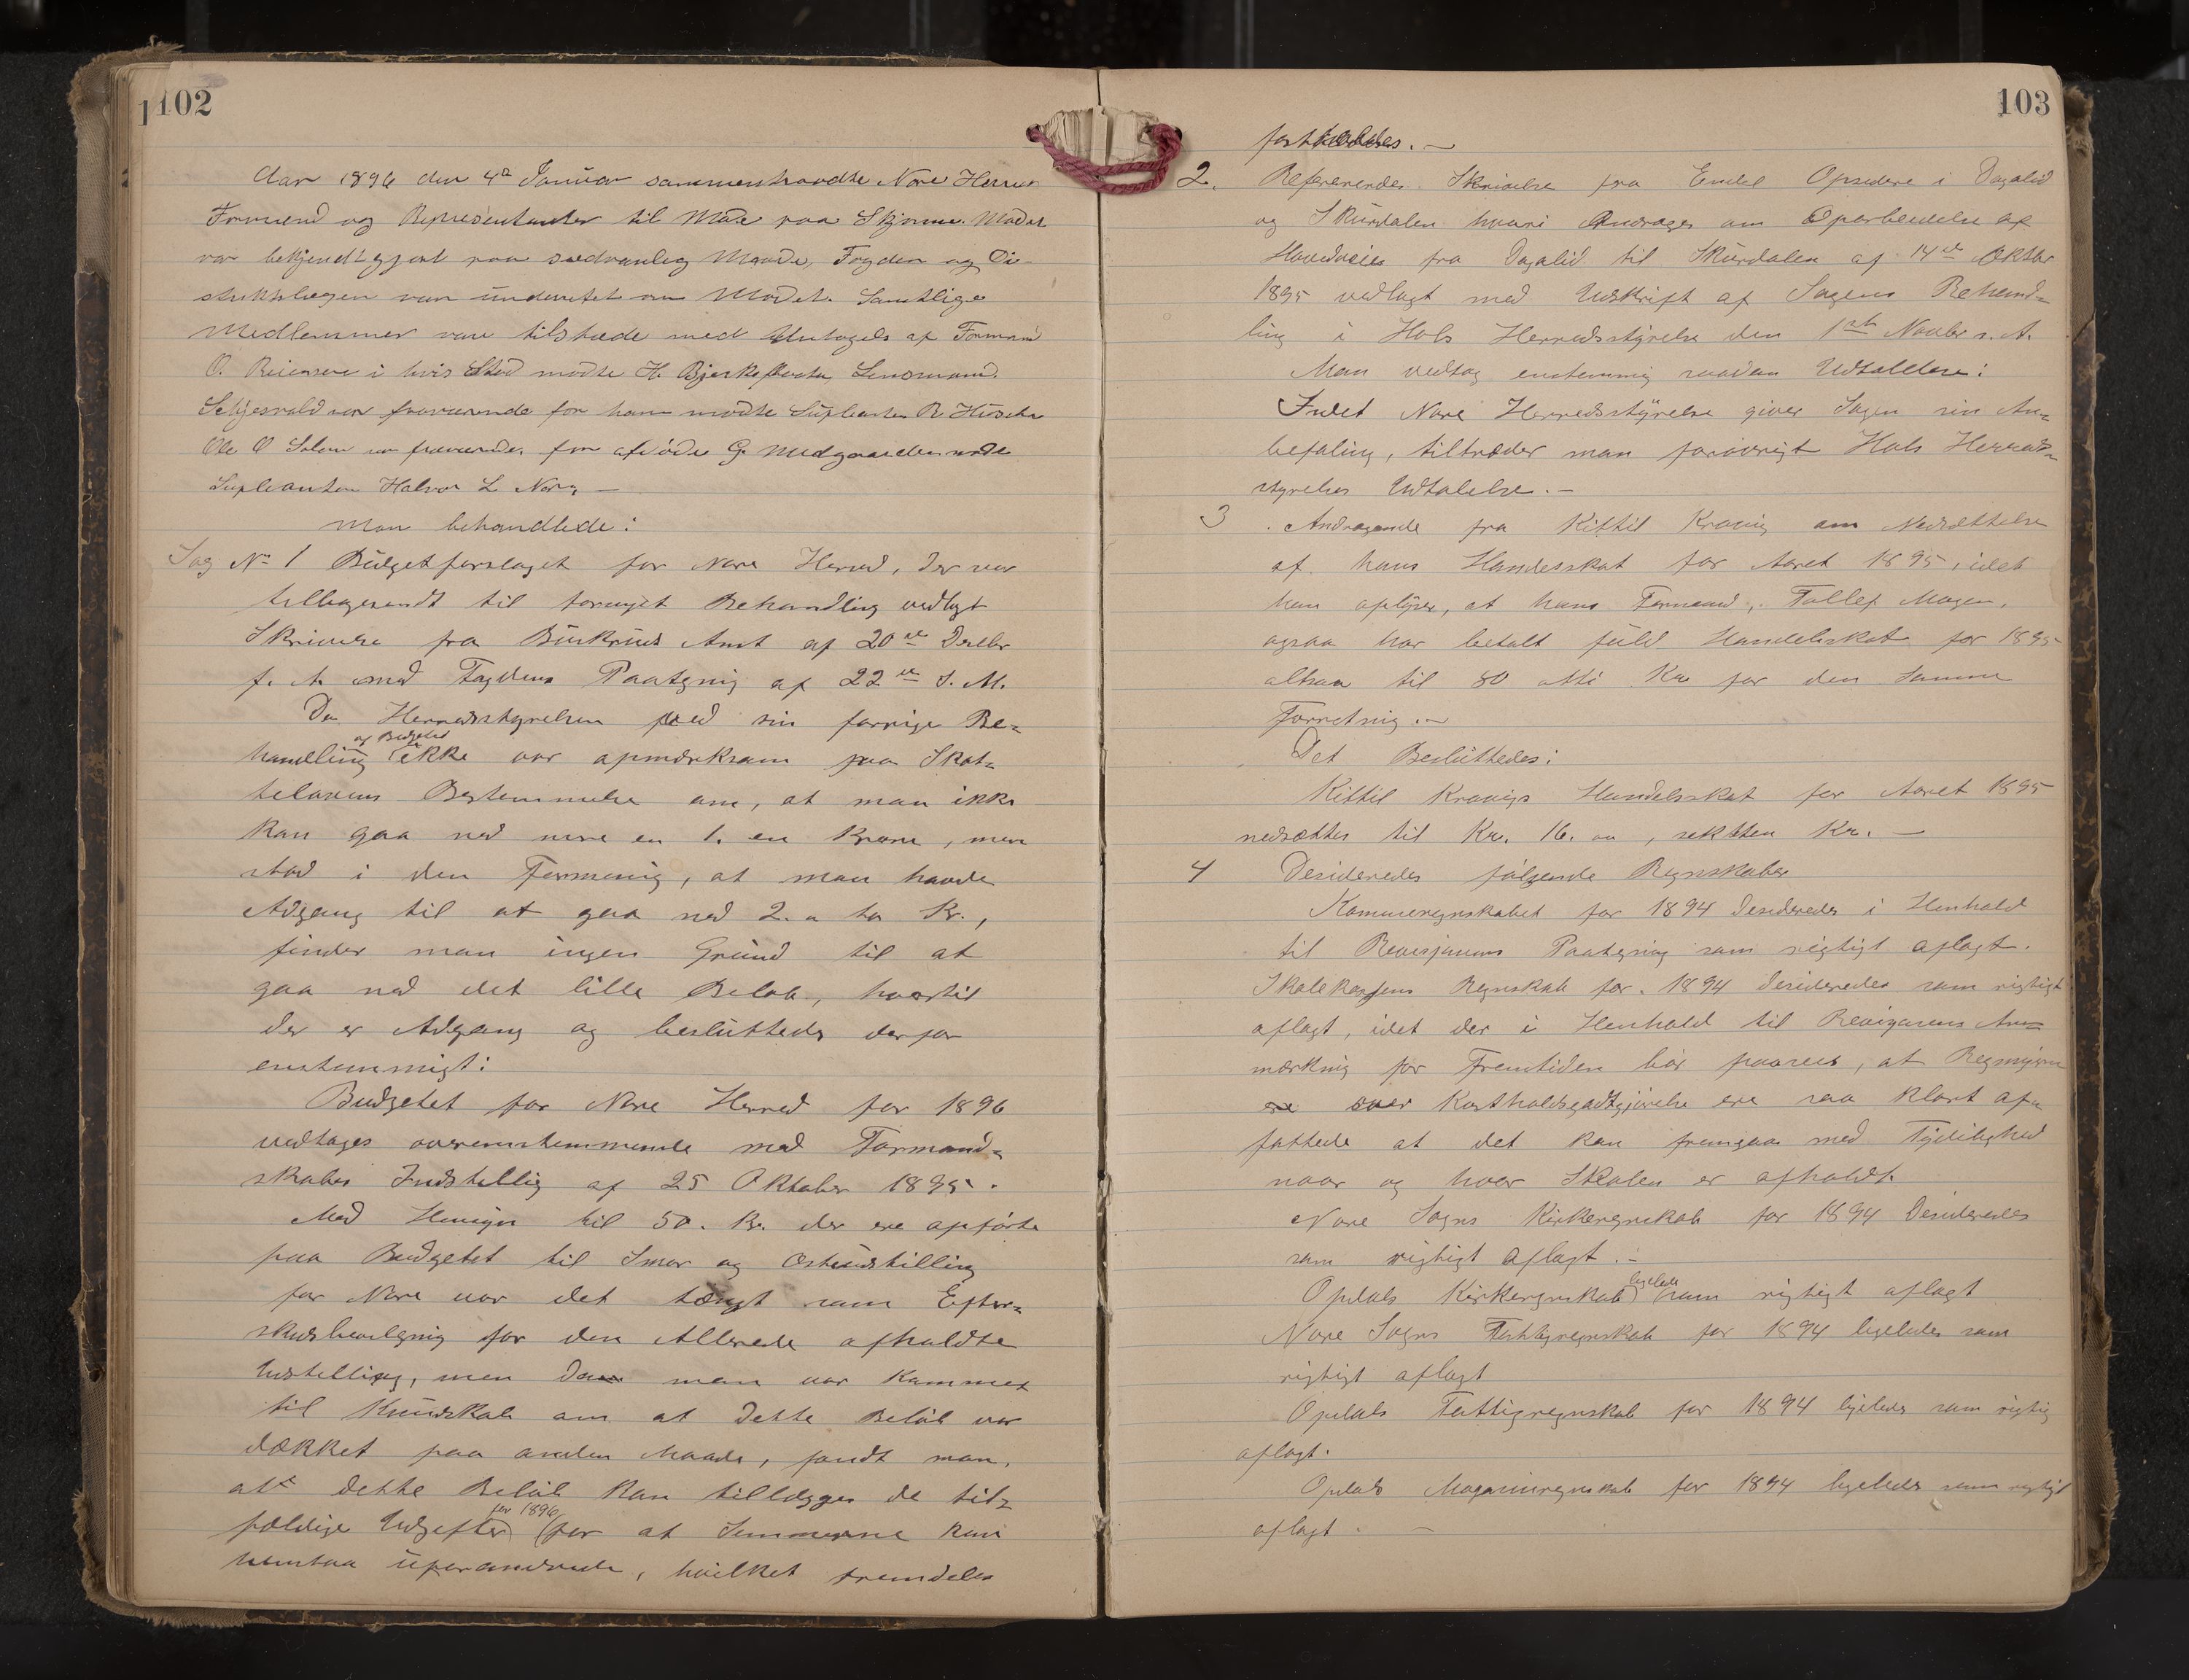 102
Aar 1896 den 4de Januar sammentraadte Nore Herreds
Formænd og Repræsentanter til Møde paa Skjønne. Mødet
var bekjendtgjort paa sædvanlig Maade, Fogden og Di-
striktslægen var underrettet om Mødet. Samtlige
Medlemmer var tilstæde med Untagels af Formand
O. Reiersen i hvis Sted mødte H. Bjerkeflaata, Lensmand
var fraværende for ham mødte Supleanten
Ole O var fraværende, for afdøde G. Medgaarden mødte
Supleanten Halvor L Nore, —
Man behandlede:
Sag No 1 Budgetforslaget for Nore Herred, der var
tilbagesendt til fornyet Behandling vedlagt
Skrivelse fra Buskruds Amt af 20de Decbr
f. A. med Fogdens Paategnig af 22de s. M.
Da Herredsstyrelsen ved sin forrige Be-
handling af Budgettet ikke var opmærksom paa Skat-
telovens Bestemmelse om, at man ikke
kan gaa ned mere en 1. en Krone, men
stod i den Formenig, at man havde
Adgang til at gaa ned 2. a to Kr.,
finder man ingen Grund til at
gaa ned det lille Beløb, hvortil
der er Adgang og besluttede derfor
enstemmigt:
Budgetet for Nore Herred for 1896
vedtages overenstemmende med Formand-
skabets Indstillig af 25 Oktober 1895.
Med Hensyn til 50. Kr. der ere opførte
paa Budgetet til Smør og Ostudstilling
for Nore var det tængt som Efter-
skudsbevilgnig for den Allerede afholdte
Udstilling, men da man var kommet
til Kundskab om at dette Beløb var
dækket paa anden Maade, fandt man,
at dette Beløb kan tillægges de til-
fældige Udgifter for 1896 for at Summerne kan
uforandrede, hvilket fremdeles
103
fastholdes. —
2. Refereredes Skrivelse fra Endel Opsidere i Dagalid
og Skurdalen hvori Andrages om Oparbeidelse af
Hovedveien fra Dagalid til Skurdalen af 14de Oktbr
1895 vedlagt med Udskrift af Sagens Behand-
ling i Hols Herredsstyrelse den 1ste Novbr s. A.
Man vedtog enstemmig saadan Udtalelse:
Idet Nore Herredsstyrelse giver Sagen sin An-
befaling, tiltræder man forøvrigt Hols Herreds-
styrelses Udtalelse. —
3. Andragende fra Kittil Kravig om Nedsættelse
af hans Handelsskat for Aaret 1895, idet
han oplyser, at hans Formand, Tollef Mogen,
ogsaa har betalt fuld Handelsskat for 1895
altsaa til 80 otti Kr for den samme
Forretnig. —
Det Besluttedes:
Kittil Kravigs Handelsskat for Aaret 1895
nedsættes til Kr. 16. oo, sekstten Kr. —
4 Desideredes følgende Regnskaber
Kommuneregnskabet for 1894 Desideredes i Henhold
til Revisjonens Paategning som rigtigt aflagt.
Skolekassens Regnskab for 1894 desideredes som rigtigt
aflagt, idet der i Henhold til Revisorens An-
mærknig for Fremtiden bør paasees, at Regnigerne
over Kostholdsgodtgjørelse ere saa klart af-
fattede at det kan fremgaa med Tydelighed
naar og hvor Skolen er afholdt.
Nore Sogns Kirkeregnskab for 1894 Desideredes
som rigtigt aflagt. —
Opdals Kirkeregnskab ligeledes som rigtigt aflagt
Nore Sogns Fattigregnskab for 1894 ligeledes som
rigtigt aflagt
Opdals Fattigregnskab for 1894 ligeledes som rigtig
aflagt.
Opdals Magasinregnskab for 1894 ligeledes som rigtigt
aflagt. —